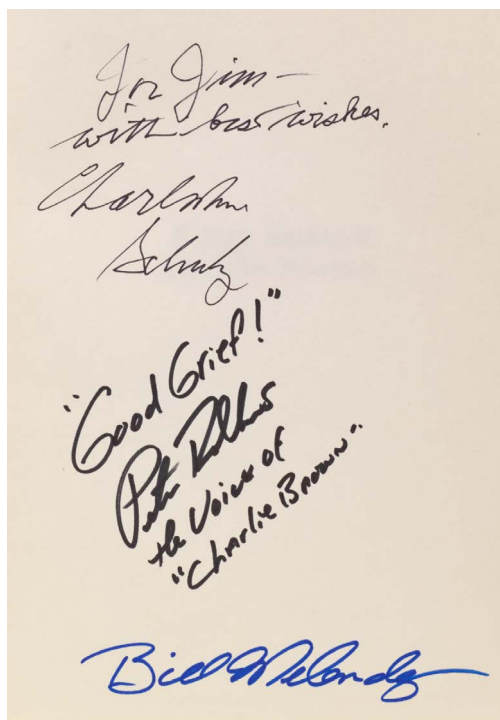 For Jim –
with best wishes.
Charles M.
Schulz
"Good Grief!"
Peter Robbins
the Voice of
"Charlie Brown".
Bill Melendez